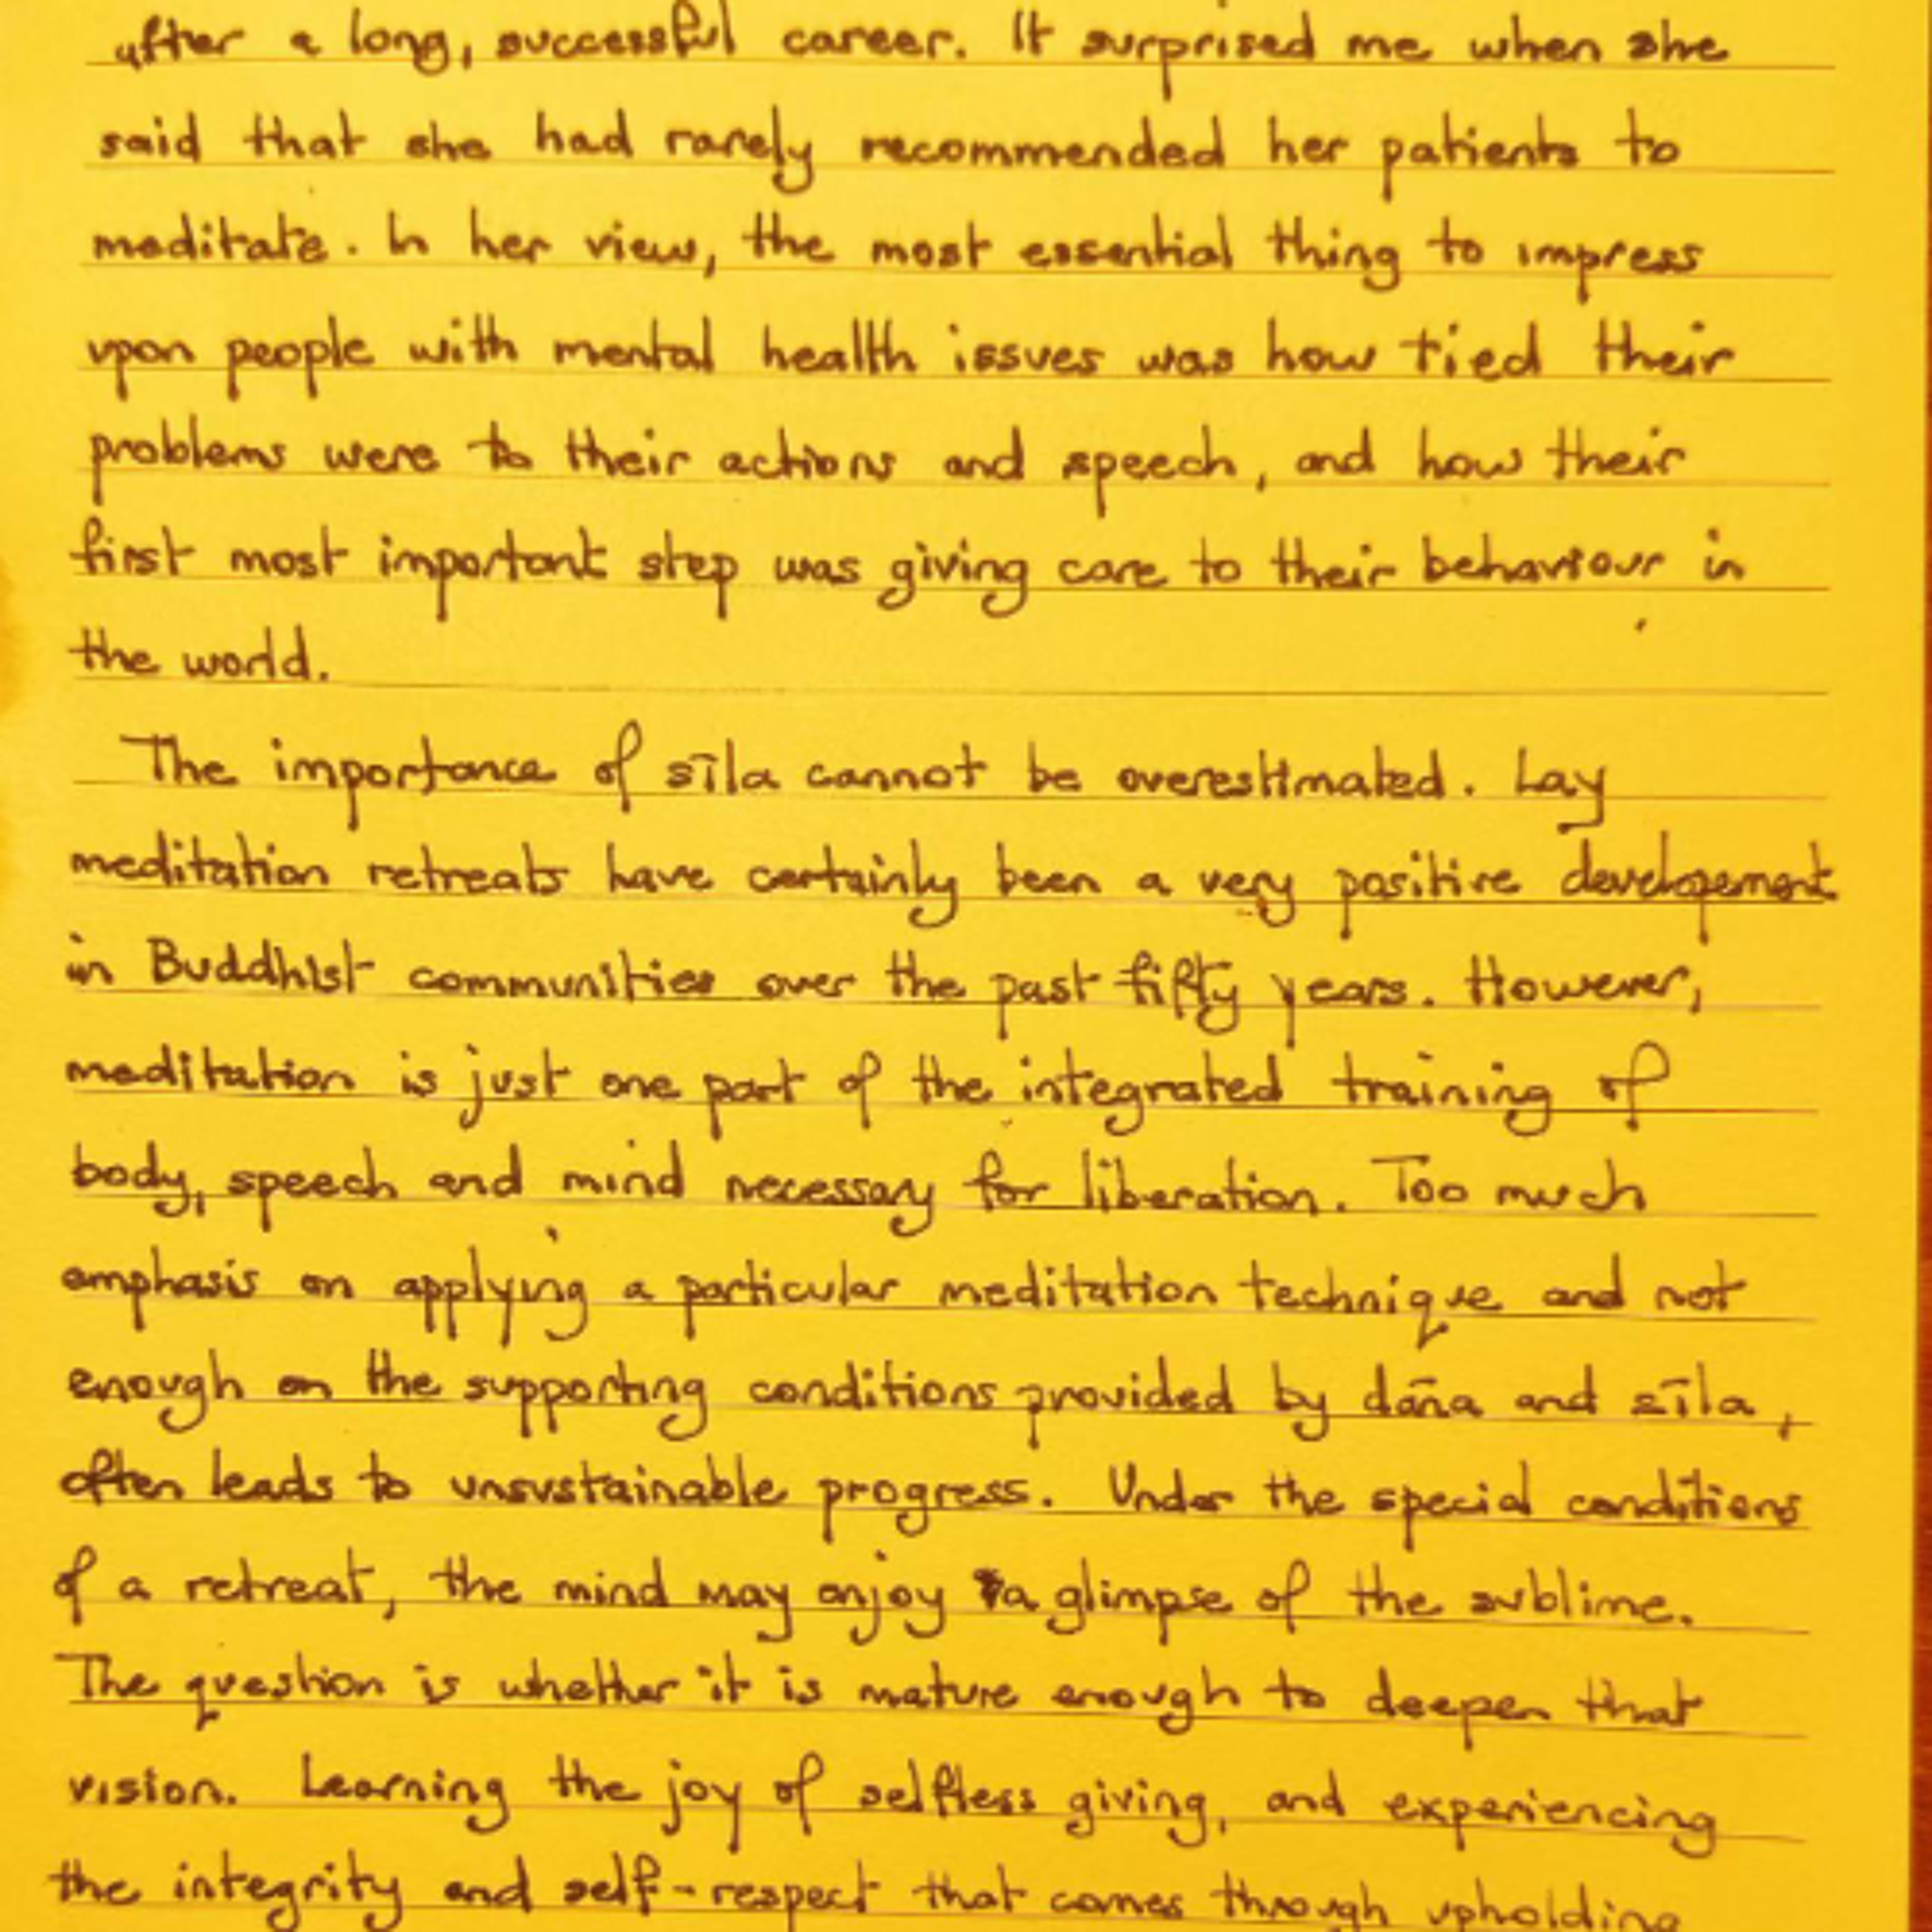 after a long, successful career. It surprised me when she
said that she had rarely recommended her patients to
meditate. In her view, the most essential thing to impress
upon people with mental health issues was how tied their
problems were to their actions and speech, and how their
first most important step was giving care to their behaviour in
the world.
The importance of sīla cannot be overestimated. Lay
meditation retreats have certainly been a very positive developement
in Buddhist communities over the past fifty years. However,
meditation is just one part of the integrated training of
body, speech and mind necessary for liberation. Too much
emphasis on applying a particular meditation technique and not
enough on the supporting conditions provided by dāna and sīla,
often leads to unsustainable progress. Under the special conditions
of a retreat, the mind may enjoy a glimpse of the sublime.
The question is whether it is mature enough to deepen that
vision. Learning the joy of selfless giving, and experiencing
the integrity and self-respect that comes through upholding